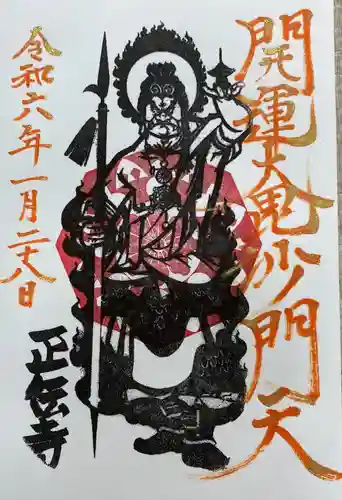 開運大毘沙門天
令和六年一月二十八日
正伝寺